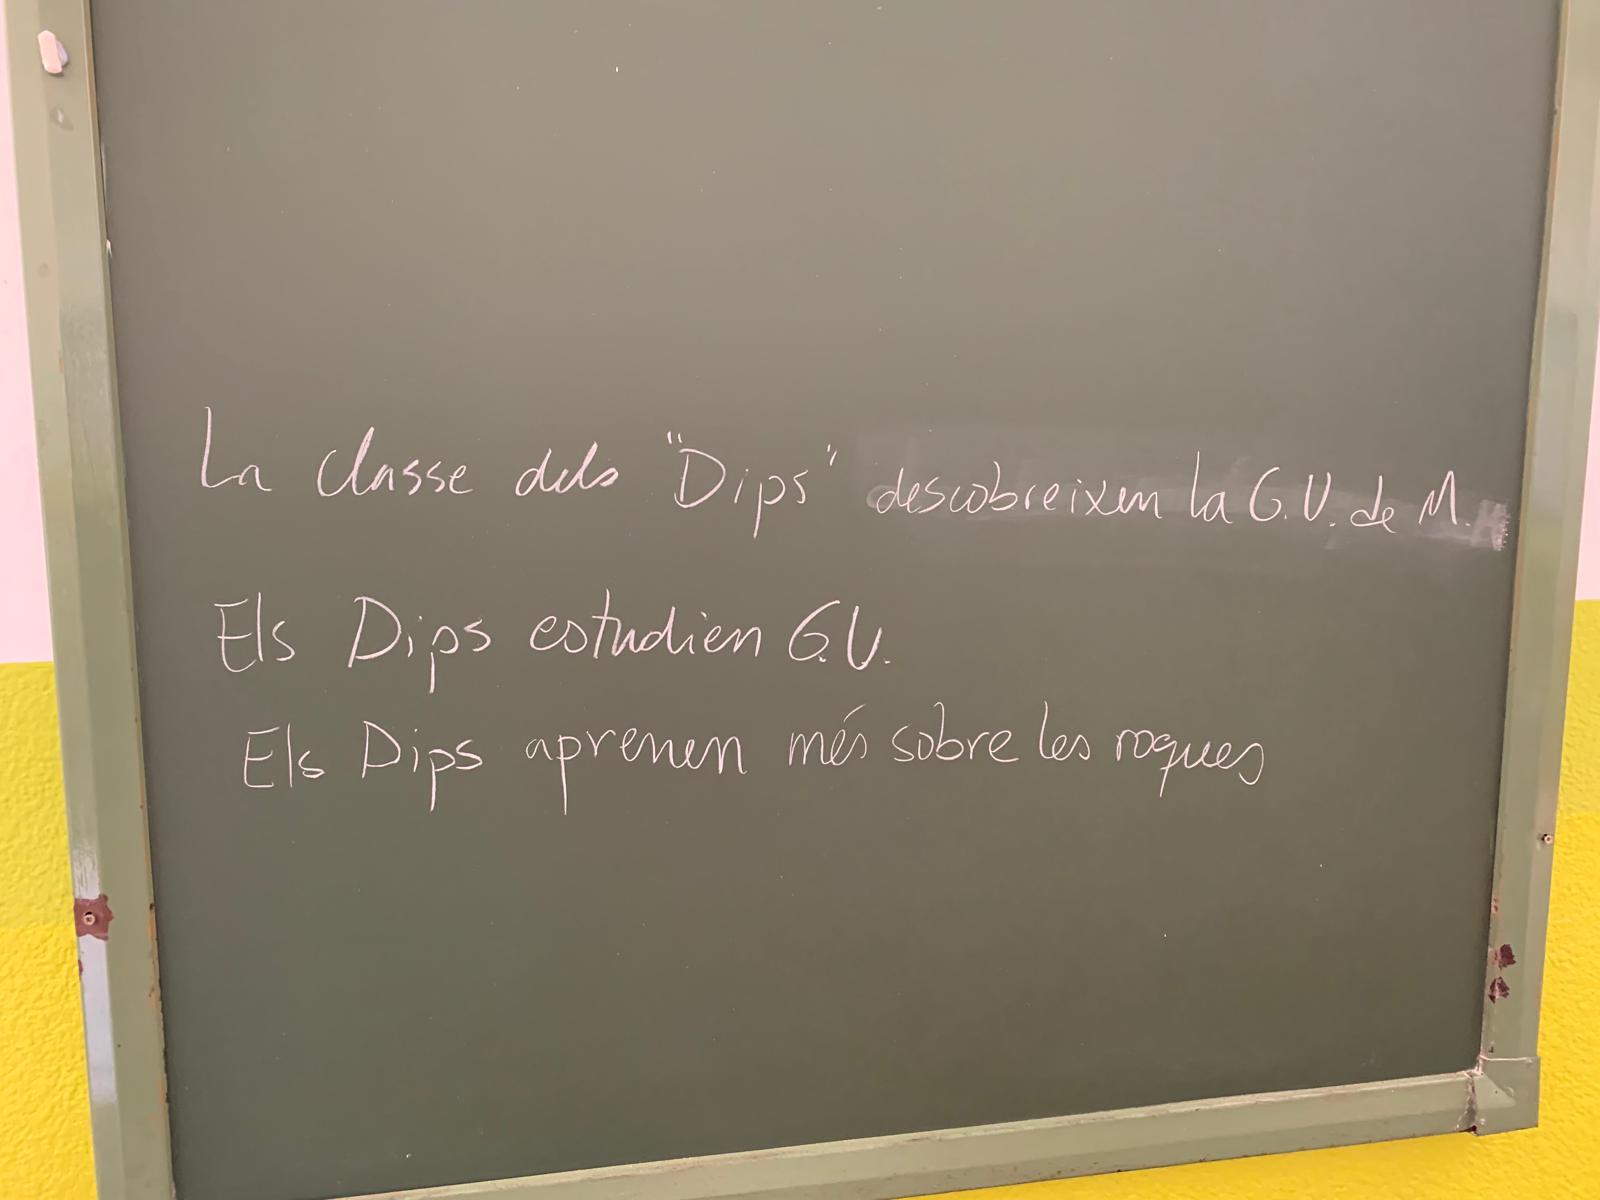 La classe dels "Dips" descobreixen la G.U. de M.
Els Dips estudien G.U.
Els Dips aprenen més sobre les roques